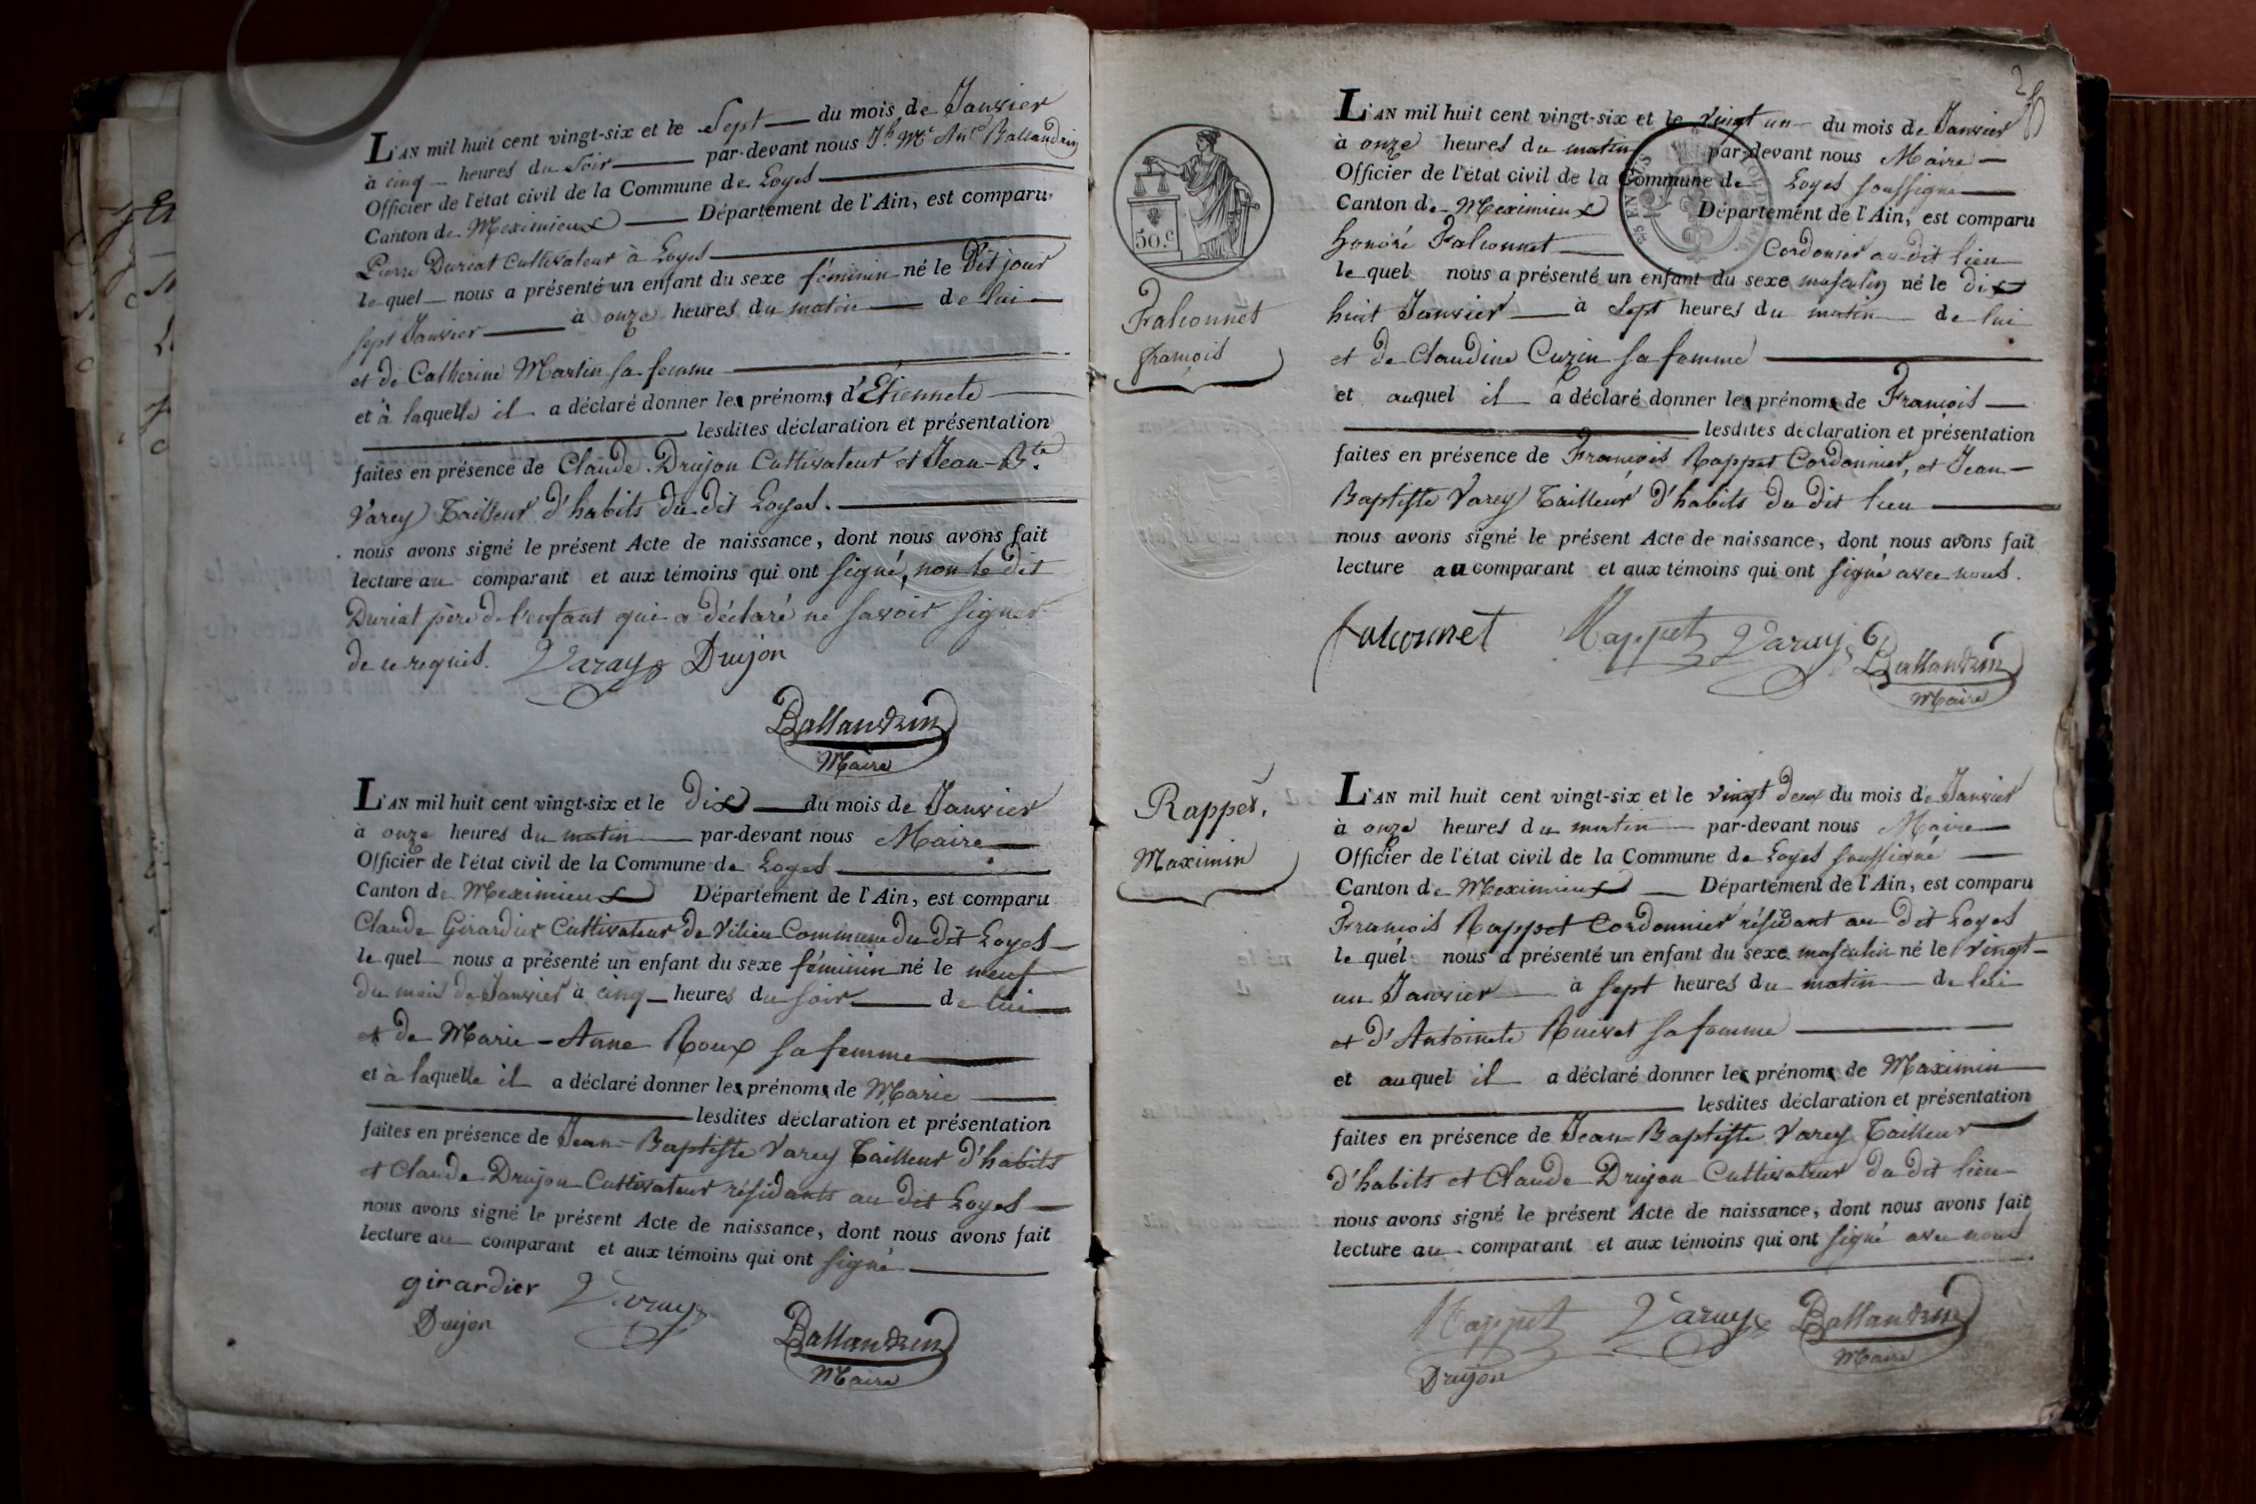 L'AN mil huit cent vingt-six et le Sept du mois de Janvier
à cinq heures du Soir par-devant nous Jh Me Ane Ballandrin
Officier de l'état civil de la Commune de Loyes
Canton de Meximieux Département de l'Ain, est comparu
Pierre Duriat Cultivateur à Loyes
le quel nous a présenté un enfant du sexe féminin né le Dit jour
sept Janvier à onze heures du matin de lui
et de Catherine Martin sa femme
et à laquelle il a déclaré donner les prénoms d'Etiennete
lesdites déclaration et présentation
faites en présence de Claude Drujon Cultivateur et Jean-Bte
Varey Tailleur d'habits du dit Loyes.
nous avons signé le présent Acte de naissance, dont nous avons fait
lecture au comparant et aux témoins qui ont signé, non le dit
Duriat père de l'enfant qui a déclaré ne savoir signer
de ce requis. Varay Drujon
Ballandrin
Maire
L'AN mil huit cent vingt-six et le dix du mois de Janvier
à onze heures du matin par-devant nous Maire
Officier de l'état civil de la Commune de Loyes
Canton de Meximieux Département de l'Ain, est comparu
Claude Girardier Cultivateur de Vilieu Commune du dit Loyes
le quel nous a présenté un enfant du sexe féminin né le neuf
du mois de Janvier à cinq heures du soir de lui
et de Marie-Anne Roux sa femme
et à laquelle il a déclaré donner les prénoms de Marie
lesdites déclaration et présentation
faites en présence de Jean-Baptiste Varey Tailleur d'habits
et Claude Drujon Cultivateur résidants au dit Loyes
nous avons signé le présent Acte de naissance, dont nous avons fait
lecture au comparant et aux témoins qui ont signé
girardier Varay
Drujon
Ballandrin
Maire
2
50.c
Falconnet
françois
L'AN mil huit cent vingt-six et le vingt un du mois de Janvier
à onze heures du matin par-devant nous Maire
Officier de l'état civil de la Commune de Loyes soussigné
Canton de Meximieux Département de l'Ain, est comparu
honoré Falconnet Cordonier au dit lieu
le quel nous a présenté un enfant du sexe masculin né le dix
huit Janvier à Sept heures du matin de lui
et de Claudine Cuzin sa femme
et auquel il a déclaré donner les prénoms de François
lesdites déclaration et présentation
faites en présence de François Rappet Cordonnier, et Jean-
Baptiste Varey Tailleur d'habits du dit lieu
nous avons signé le présent Acte de naissance, dont nous avons fait
lecture au comparant et aux témoins qui ont signé avec nous.
falconnet Rappet Varay Ballandrin
Maire
Rappet,
Maximin
L'AN mil huit cent vingt-six et le vingt deux du mois de Janvier
à onze heures du matin par-devant nous Maire
Officier de l'état civil de la Commune de Loyes soussigné
Canton de Meximieux Département de l'Ain, est comparu
François Rappet Cordonnier résidant au dit Loyes
le quel nous a présenté un enfant du sexe masculin né le vingt-
un Janvier à sept heures du matin de lui
et d'Antoinete Ruivet sa femme
et auquel il a déclaré donner les prénoms de Maximin
lesdites déclaration et présentation
faites en présence de Jean-Baptiste Varey Tailleur
d'habits et Claude Drujon Cultivateur du dit lieu
nous avons signé le présent Acte de naissance, dont nous avons fait
lecture au comparant et aux témoins qui ont signé avec nous
Rappet Varay Ballandrin
Drujon Maire